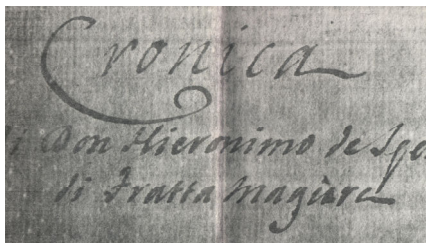 Cronica
di Don Hieronimo de
di Fratta Magiore